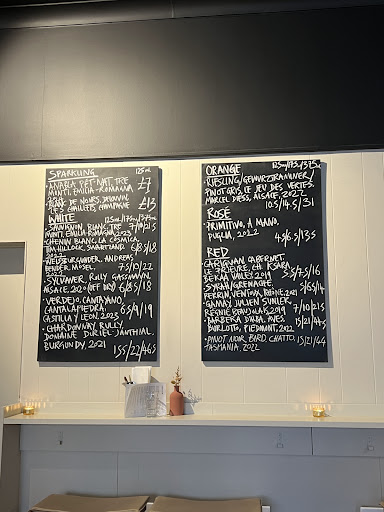 SPARKLING 125ML
• ANABLA PET-NAT, TRE
MONTI, EMILIA-ROMANNA £7
DE NOURS, DEVAVRY
LES CHALLETS, CHAMPAGNE £13
WHITE 125ML/175ML/375ML
• SAUVIGNON BLANC, TRE
MONTI, EMILIA-ROMAGNA, 2023 7/10/21.5
CHENIN BLANC, LA COSMICA,
TIM HILLOCK, SWARTLAND 6/8.5/18
WEISSBURGUNDER, ANDREAS
BENDER, MOSEL, 7.5/10/22
• SYLVANER, ROLLY GASSMANN,
ALSACE, 2020 (OFF DRY) 6/8.5/18
• VERDEJO, CANTAYANO,
CANTALAPIEDRA,
CASTILLA Y LEON, 2023 6.5/9/19
• CHARDONNAY RULLY,
DOMAINE DURIEL-JANTHIAL,
BURGUNDY, 2021 15.5/22/46.5
ORANGE 125ML/175ML/375ML
• RIESLING/GEWURZTRAMINER/
PINOT GRIS, LE JEU DES VERTES,
MARCEL DEISS, ALSACE, 2022
10.5/14.5/31
ROSE
• PRIMITIVO, A MANO,
PUGLIA, 2022 4.5/6.5/13.5
RED
CARIGNAN CABERNET,
LE PRIEURE, CH. KSARA,
BEKAA VALLEY, 2019 5.5/7.5/16
• SYRAH/GRENACHE,
PERRIN, VENTOUX, RHONE, 2021 5/6.5/14
• GAMAY, JULIEN SUNIER,
REGNIE BEAUJOLAIS, 2019 7/10/21.5
• BARBERA D'ALBA, AVES,
BURLOTTO, PIEDMONT, 2022 15/21/44.5
• PINOT NOIR, BIRD, CHATTO, 15/21/44
TASMANIA, 2022